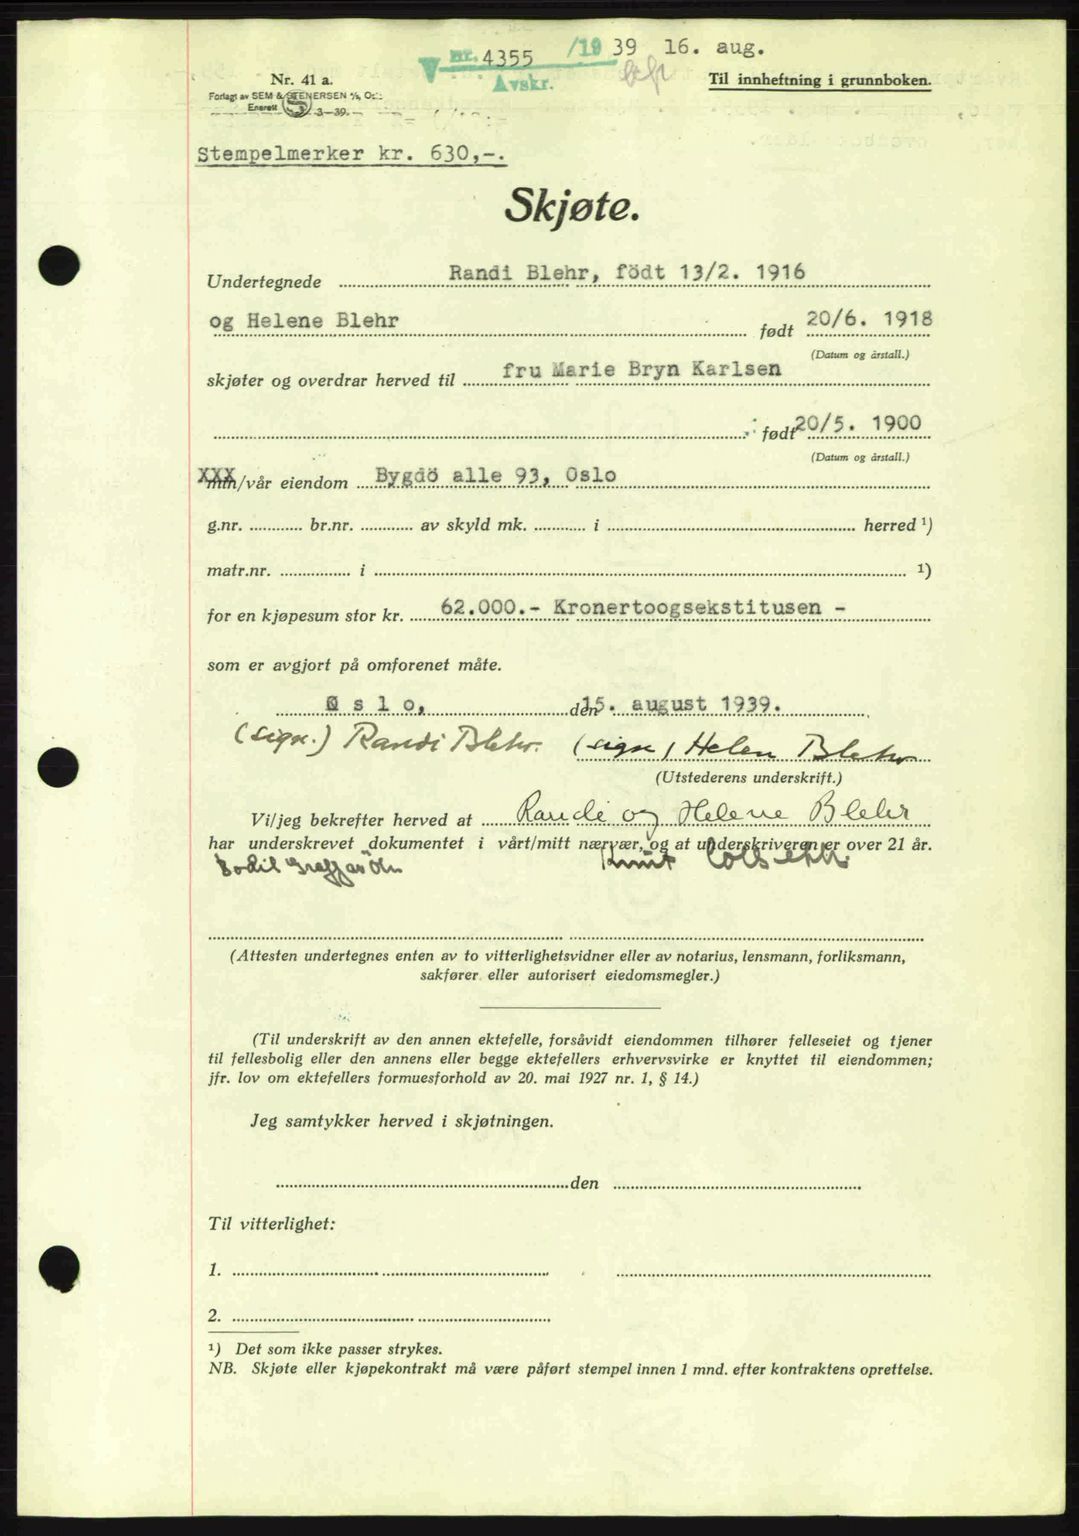 nr. 4355 /19 39 16. aug.
Avskr.
Nr. 41 a.
Til innheftning i grunnboken.
Forlagt av SEM & STENERSEN A/S, Oslo
Enerett 3-39.
Stempelmerker kr. 630,-.
Skjøte.
Undertegnede Randi Blehr, födt 13/2. 1916
og Helene Blehr født 20/6. 1918
(Datum og årstall.)
skjøter og overdrar herved til fru Marie Bryn Karlsen
født 20/5. 1900
(Datum og årstall.)
XXX min/vår eiendom Bygdö alle 93, Oslo
g.nr. br.nr. av skyld mk. i herred ¹)
matr.nr. i ¹)
for en kjøpesum stor kr. 62.000.- Kronertoogsekstitusen -
som er avgjort på omforenet måte.
Ø s l o, den 15. august 1939.
(sign.) Randi Blehr. (sign) Helen Blehr
(Utstederens underskrift.)
Vi/jeg bekrefter herved at Randi og Helene Blehr
har underskrevet dokumentet i vårt/mitt nærvær, og at underskriveren er over 21 år.
Bodil Knut
(Attesten undertegnes enten av to vitterlighetsvidner eller av notarius, lensmann, forliksmann,
sakfører eller autorisert eiedomsmegler.)
(Til underskrift av den annen ektefelle, forsåvidt eiendommen tilhører felleseiet og tjener
til fellesbolig eller den annens eller begge ektefellers erhvervsvirke er knyttet til eiendommen;
jfr. lov om ektefellers formuesforhold av 20. mai 1927 nr. 1, § 14.)
Jeg samtykker herved i skjøtningen.
den
Til vitterlighet:
1.
2.
¹) Det som ikke passer strykes.
NB. Skjøte eller kjøpekontrakt må være påført stempel innen 1 mnd. efter kontraktens oprettelse.